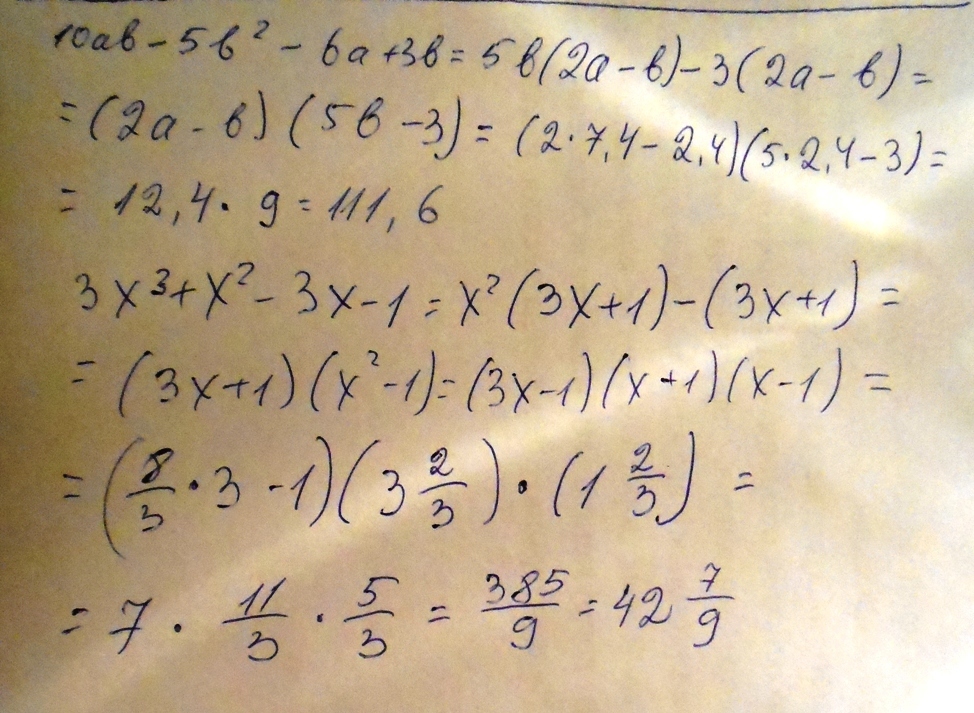 10ab - 5b² - 6a + 3b = 5b(2a - b) - 3(2a - b) =
= (2a - b)(5b - 3) = (2·7,4 - 2,4)(5·2,4 - 3) =
= 12,4 · 9 = 111,6
3x³ + x² - 3x - 1 = x²(3x + 1) - (3x + 1) =
= (3x + 1)(x² - 1) = (3x - 1)(x + 1)(x - 1) =
= (8/3 · 3 - 1)(3 2/3) · (1 2/3) =
= 7 · 11/3 · 5/3 = 385/9 = 42 7/9